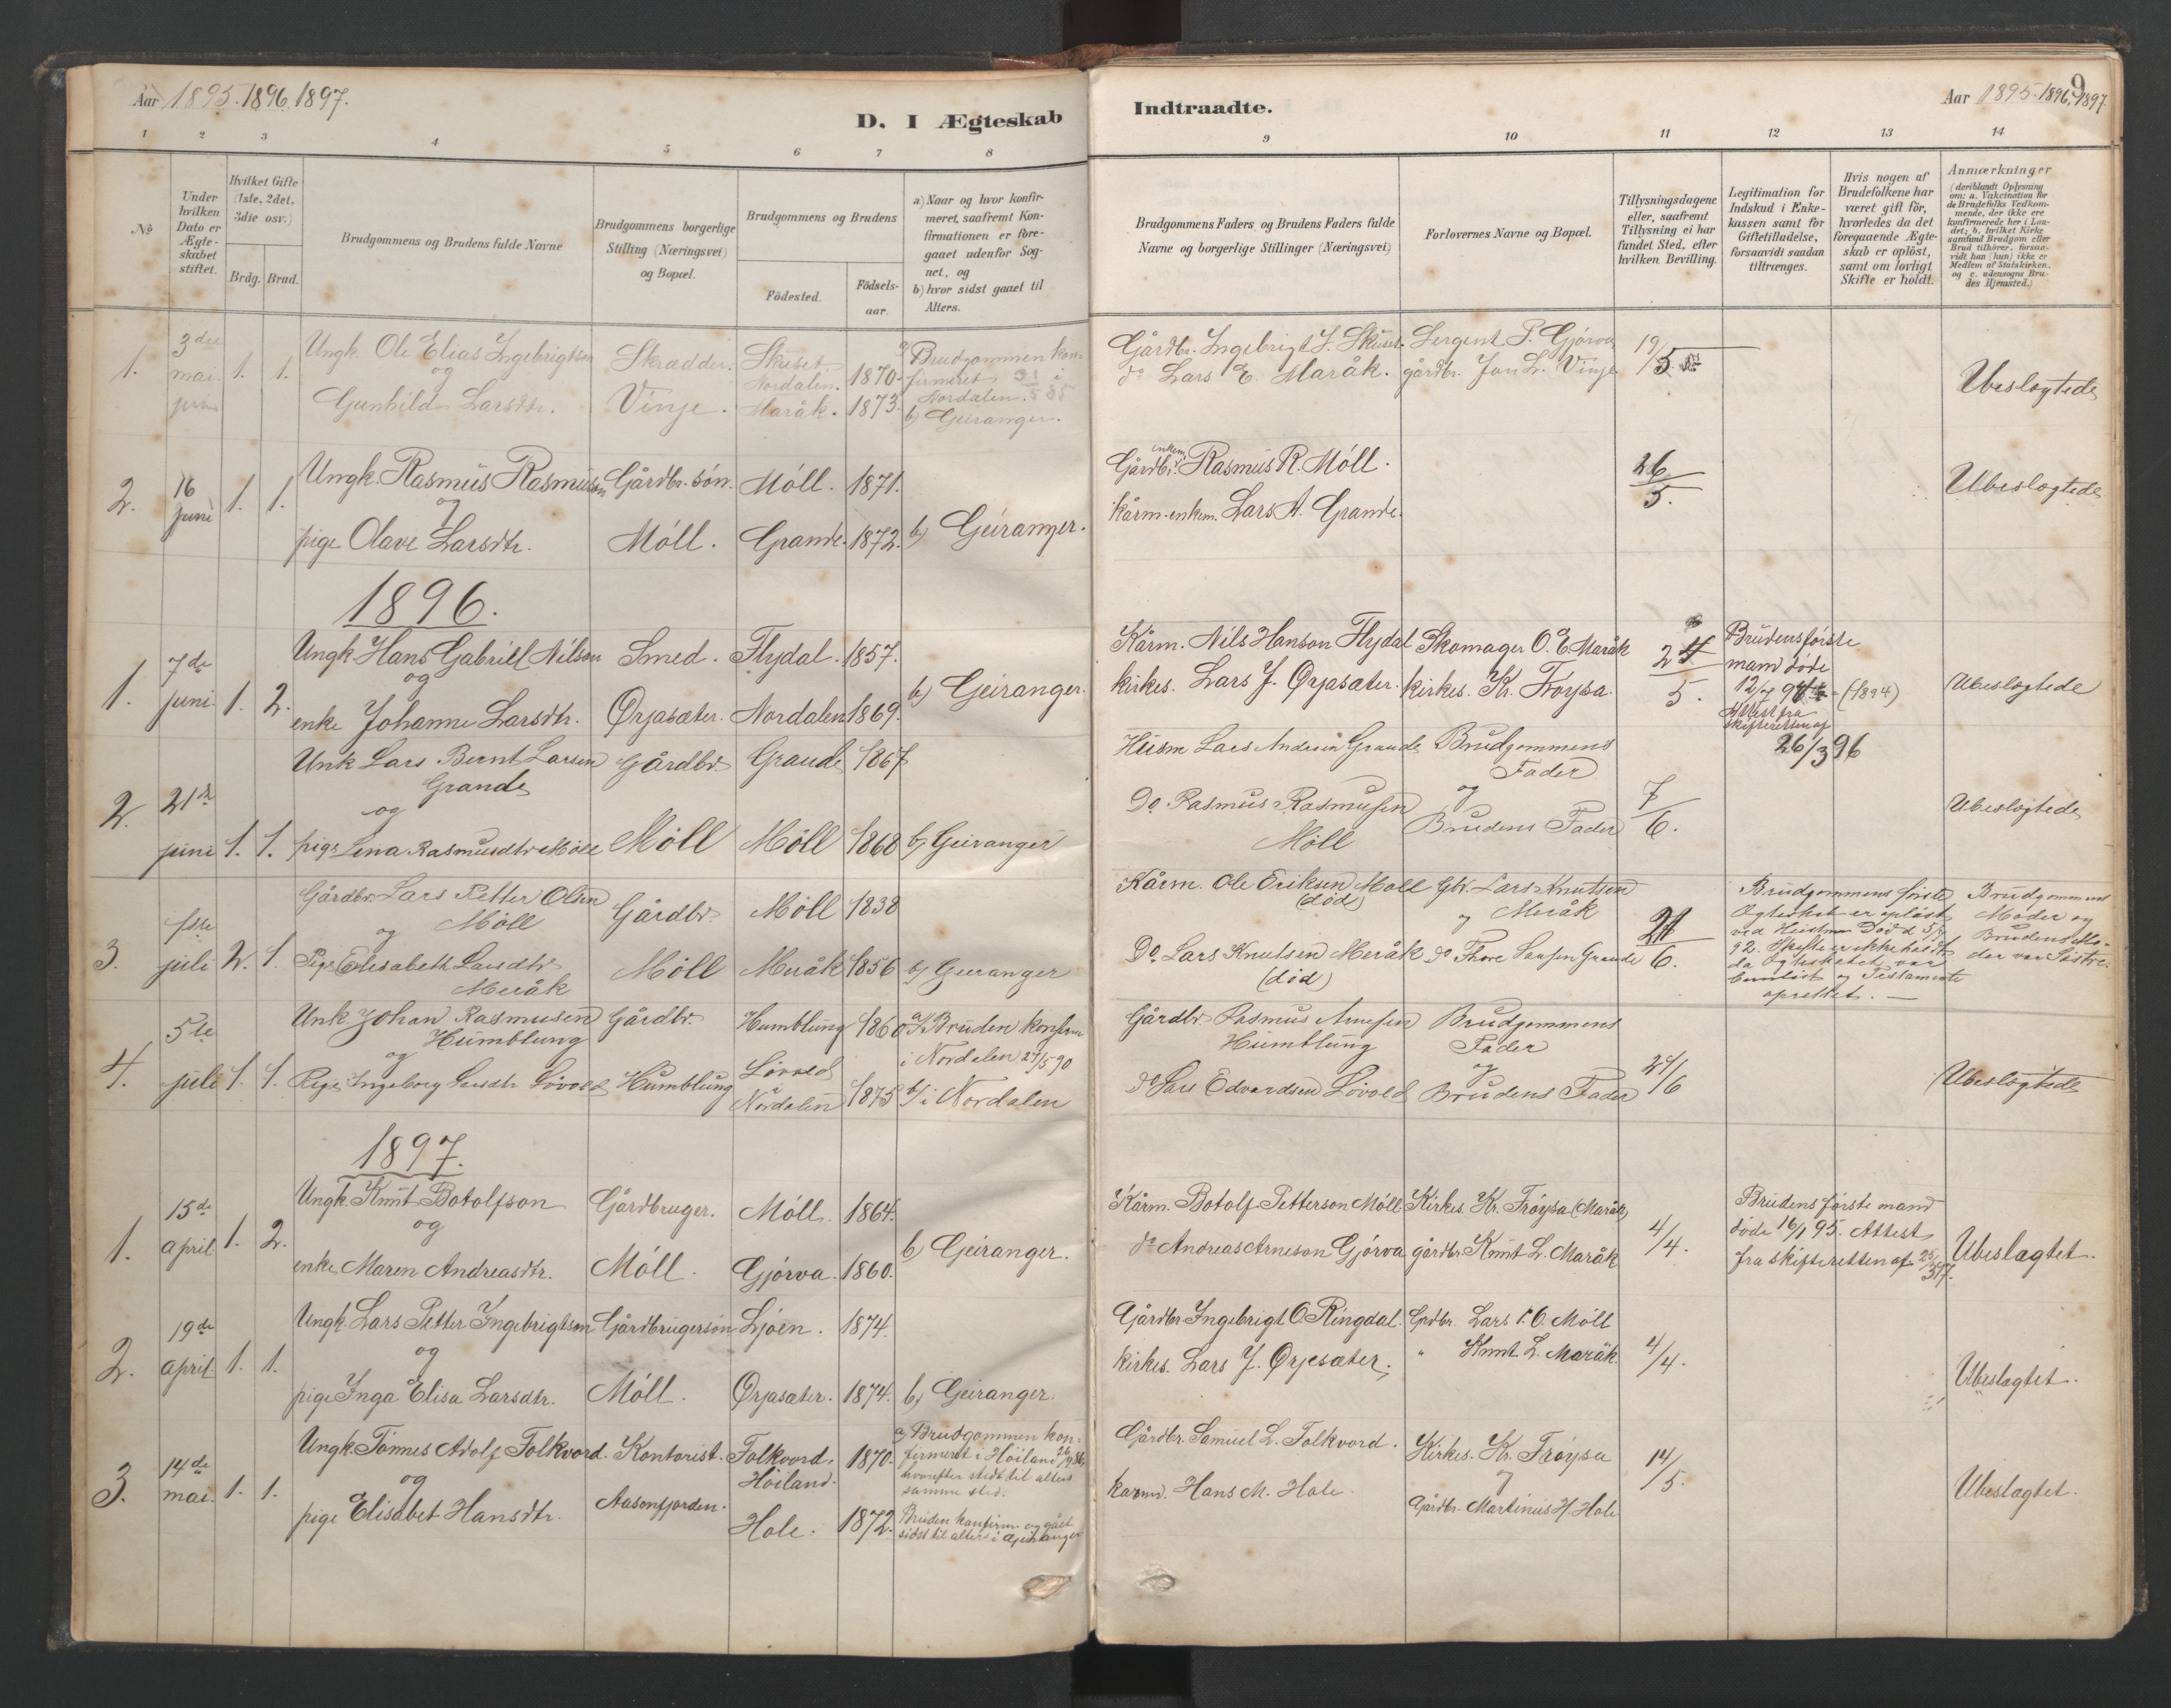 Aar 1895. 1896. 1897.
D. I Ægteskab
1 2 3 4 5 6 7 8
№
Under hvilken Dato er Ægteskabet stiftet.
Hvilket Gifte (1ste, 2det, 3die osv.)
Brdg. Brud.
Brudgommens og Brudens fulde Navne
Brudgommens borgerlige Stilling (Næringsvei) og Bopæl.
Brudgommens og Brudens
Födested.
Födsels-aar.
a) Naar og hvor konfirmeret, saafremt Konfirmationen er foregaaet udenfor Sognet, og
b) hvor sidst gaaet til Alters.
1. 3die mai 1. 1.
Ungk. Ole Elias Ingebrigtson
og
Gunhild Larsdtr.
Skrædder.
Vinje.
Skuset. Nordalen. 1870.
Maråk. 1873.
a) Brudgommen konfirmeret i Nordalen.
b) Geiranger.
2. 16 juni 1. 1.
Ungk. Rasmus Rasmuson
og
pige Olave Larsdtr.
Gårdbr. søn.
Móll.
Móll. 1871.
Grande. 1872.
b) Geiranger.
1896.
1. 7de juni 1. 2.
Ungk. Hans Gabriel Nilson
og
enke Johanne Larsdtr.
Smed.
Ørjasæter.
Flydal. 1857.
Nordalen 1869.
b) Geiranger.
2. 21de juni 1. 1.
Unk Lars Bernt Larsen
Grande
og
pige Lina Rasmusdtr Möll
Gårdbr.
Möll
Grande 1867
Möll 1868
b) Geiranger
3. 1ste juli 2. 1.
Gårdbr. Lars Petter Olsen
og Möll
Pige Elisabeth Larsdtr.
Meråk
Gårdbr.
Möll
Möll 1838
Meråk 1856
b) Geiranger
4. 5te juli 1. 1.
Unk. Johan Rasmusen
Humblung
og
Pige Ingeborg Larsdtr Lövold
Gårdbr.
Humblung
Humblung 1860
Lövold i Nordalen 1875
a) Bruden konfirm i Nordalen 27/5 90
b) i Nordalen
1897.
1. 15de april 1. 2.
Ungk. Knut Botolfson
og
enke Maren Andreasdtr.
Gårdbruger.
Móll.
Móll. 1864.
Gjórva. 1860.
b) Geiranger.
2. 19de april 1. 1.
Ungk. Lars Petter Ingebrigtson
og
pige Inga Elisa Larsdtr.
Gårdbrugersón
Móll.
Ljóen. 1874.
Ørjasæter. 1874.
b) Geiranger.
3. 14de mai. 1. 1.
Ungk. Tónnes Adolf Folkvord.
og
pige Elisabet Hansdtr.
Kontorist.
Aasenfjorden.
Folkvord, Höiland. 1870.
Hole. 1872.
a) Brudgommen konfirmeret i Höiland
hvorefter sidst til alters
samme sted.
Bruden konfirm. og gået
sidst til alters i Geiranger
Indtraadte.
Aar 1895. 1896. 1897.
9
9 10 11 12 13 14
Brudgommens Faders og Brudens Faders fulde Navne og borgerlige Stillinger (Næringsvei)
Forlovernes Navne og Bopæl.
Tillysningsdagene eller, saafremt Tillysning ei har fundet Sted, efter hvilken Bevilling.
Legitimation for Indskud i Enkekassen samt for Giftetilladelse, forsaavidt saadan tiltrænges.
Hvis nogen af Brudefolkene har været gift för, hvorledes da det foregaaende Ægteskab er oplöst, samt om lovligt Skifte er holdt.
Anmærkninger
(deriblandt Oplysning om: a. Vakcination for de Brudefolks Vedkommende, der ikke ere konfirmerede her i Landet; b. hvilket Kirkesamfund Brudgom eller Brud tilhörer, forsaavidt han (hun) ikke er Medlem af Statskirken, og c. udensogns Brudes Hjemsted.)
Gårdbr. Ingebrigt J. Skuset.
do Lars E. Maråk.
Sergent P. Gjórva
gårdbr. Jon L. Vinje
19/5
Ubeslægtede
Gårdbr. enkem. Rasmus R. Móll.
kårm. enkem. Lars A. Grande.
26/5.
Ubeslægtede
Kårm. Nils Hanson Flydal
kirkes. Lars J. Ørjasæter.
Skomager O. E. Maråk
kirkes. Kr. Fróysa.
24/5.
Brudens fórste
mand döde
(1894)
Attest fra
skifteretten af
26/3 96
Ubeslægtede
Husm Lars Andersen Grande
Do. Rasmus Rasmusen
Möll
Brudgommens
Fader
og
Brudens Fader
7/6.
Ubeslægtede
Kårm. Ole Eriksen Möll
(död)
Do. Lars Knutsen Meråk
(död)
Gbr. Lars Knutsen
og Meråk
Do Thore Larsen Grande
21/6.
Brudgommens förste
Ægteskab er oplöst
ved Hustruens Död d
92. Skifte er ikke holdt
da Ægteskabet var
barnlöst og Testamente
oprettet.
Brudgommens
Moder og
Brudens Moder var Söstre.
Gårdbr. Rasmus Arnesen
Humblung
do Lars Edvardsen Lövold
Brudgommens
Fader
og
Brudens Fader
21/6
Ubeslægtede
Kårm. Botolf Petterson Móll
do Andreas Arneson Gjórva
Kirkes. Kr. Fróysa (Maråk)
gårdbr. Knut L. Maråk
4/4.
Brudens fórste mand
döde 16/1 95. Attest
fra skifteretten af 25/3 97.
Ubeslægtet.
Gårdbr. Ingebrigt O. Ringdal.
kirkes. Lars J. Ørjesæter.
Grdbr. Lars P. O. Móll
" Knut L. Maråk
4/4.
Ubeslægtet.
Gårdbr. Samuel L. Folkvord.
kårm. Hans M. Hole.
Kirkes. Kr. Fróysa
og
Gårdbr. Martinus H. Hole
14/5.
Ubeslægtet.